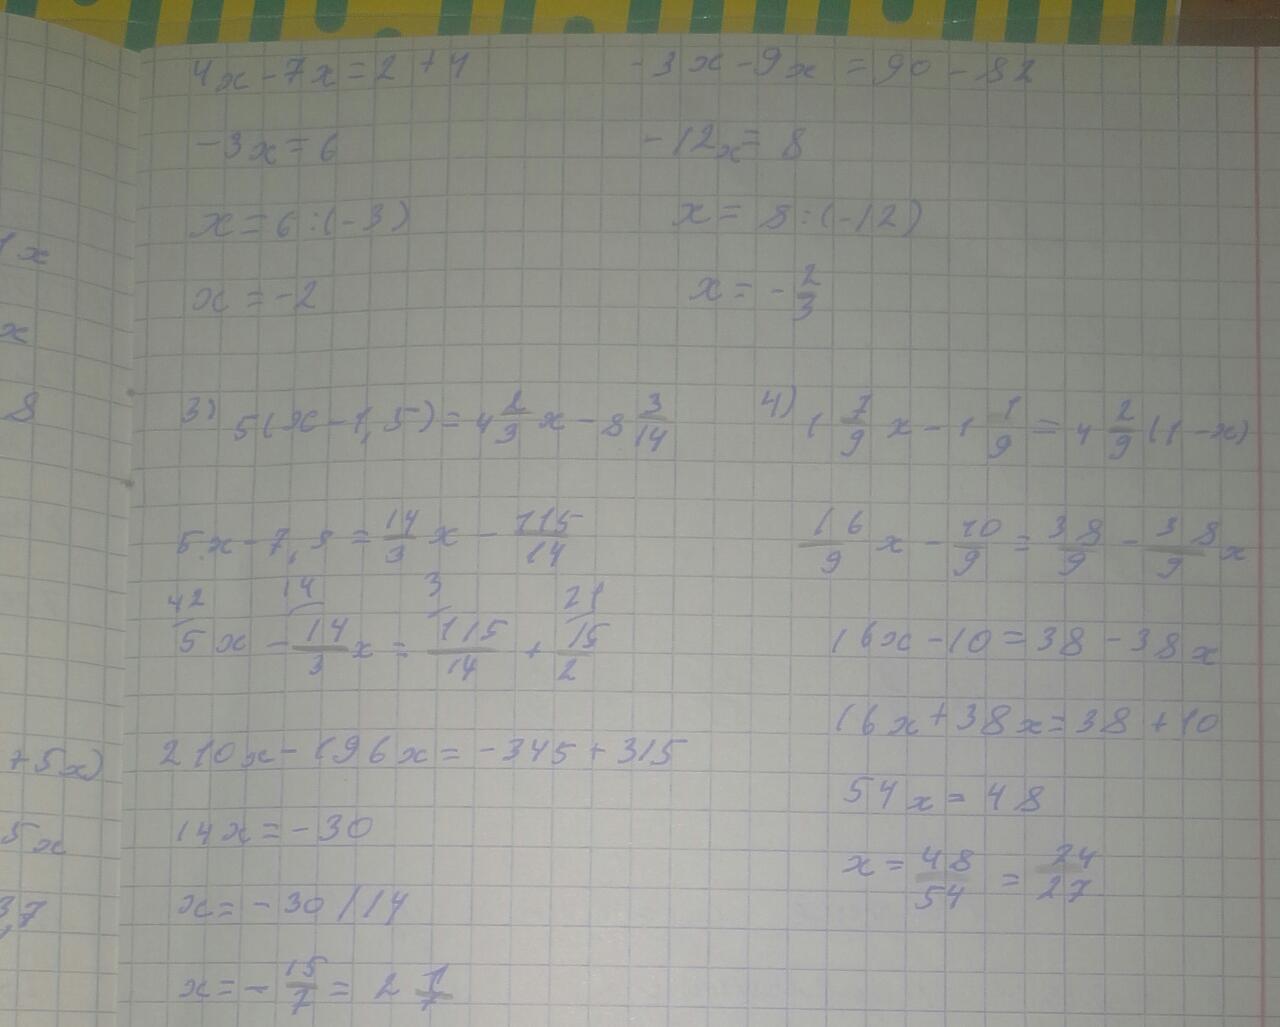 4x - 7x = 2 + 4
-3x = 6
x = 6 : (-3)
x = -2
-3x - 9x = 90 - 82
-12x = 8
x = 8 : (-12)
x = - 2/3
3) 5(x - 1,5) = 4 2/3 x - 8 3/14
5x - 7,5 = 14/3 x - 115/14
42 14 3 21
5x - 14/3 x = 115/14 + 15/2
210x - 196x = -345 + 315
14x = -30
x = -30/14
x = - 15/7 = 2 1/7
4) 1 7/9 x - 1 1/9 = 4 2/9 (1 - x)
16/9 x - 10/9 = 38/9 - 38/9 x
16x - 10 = 38 - 38x
16x + 38x = 38 + 10
54x = 48
x = 48/54 = 24/27
1x
x
8
+5x)
5x
3,7